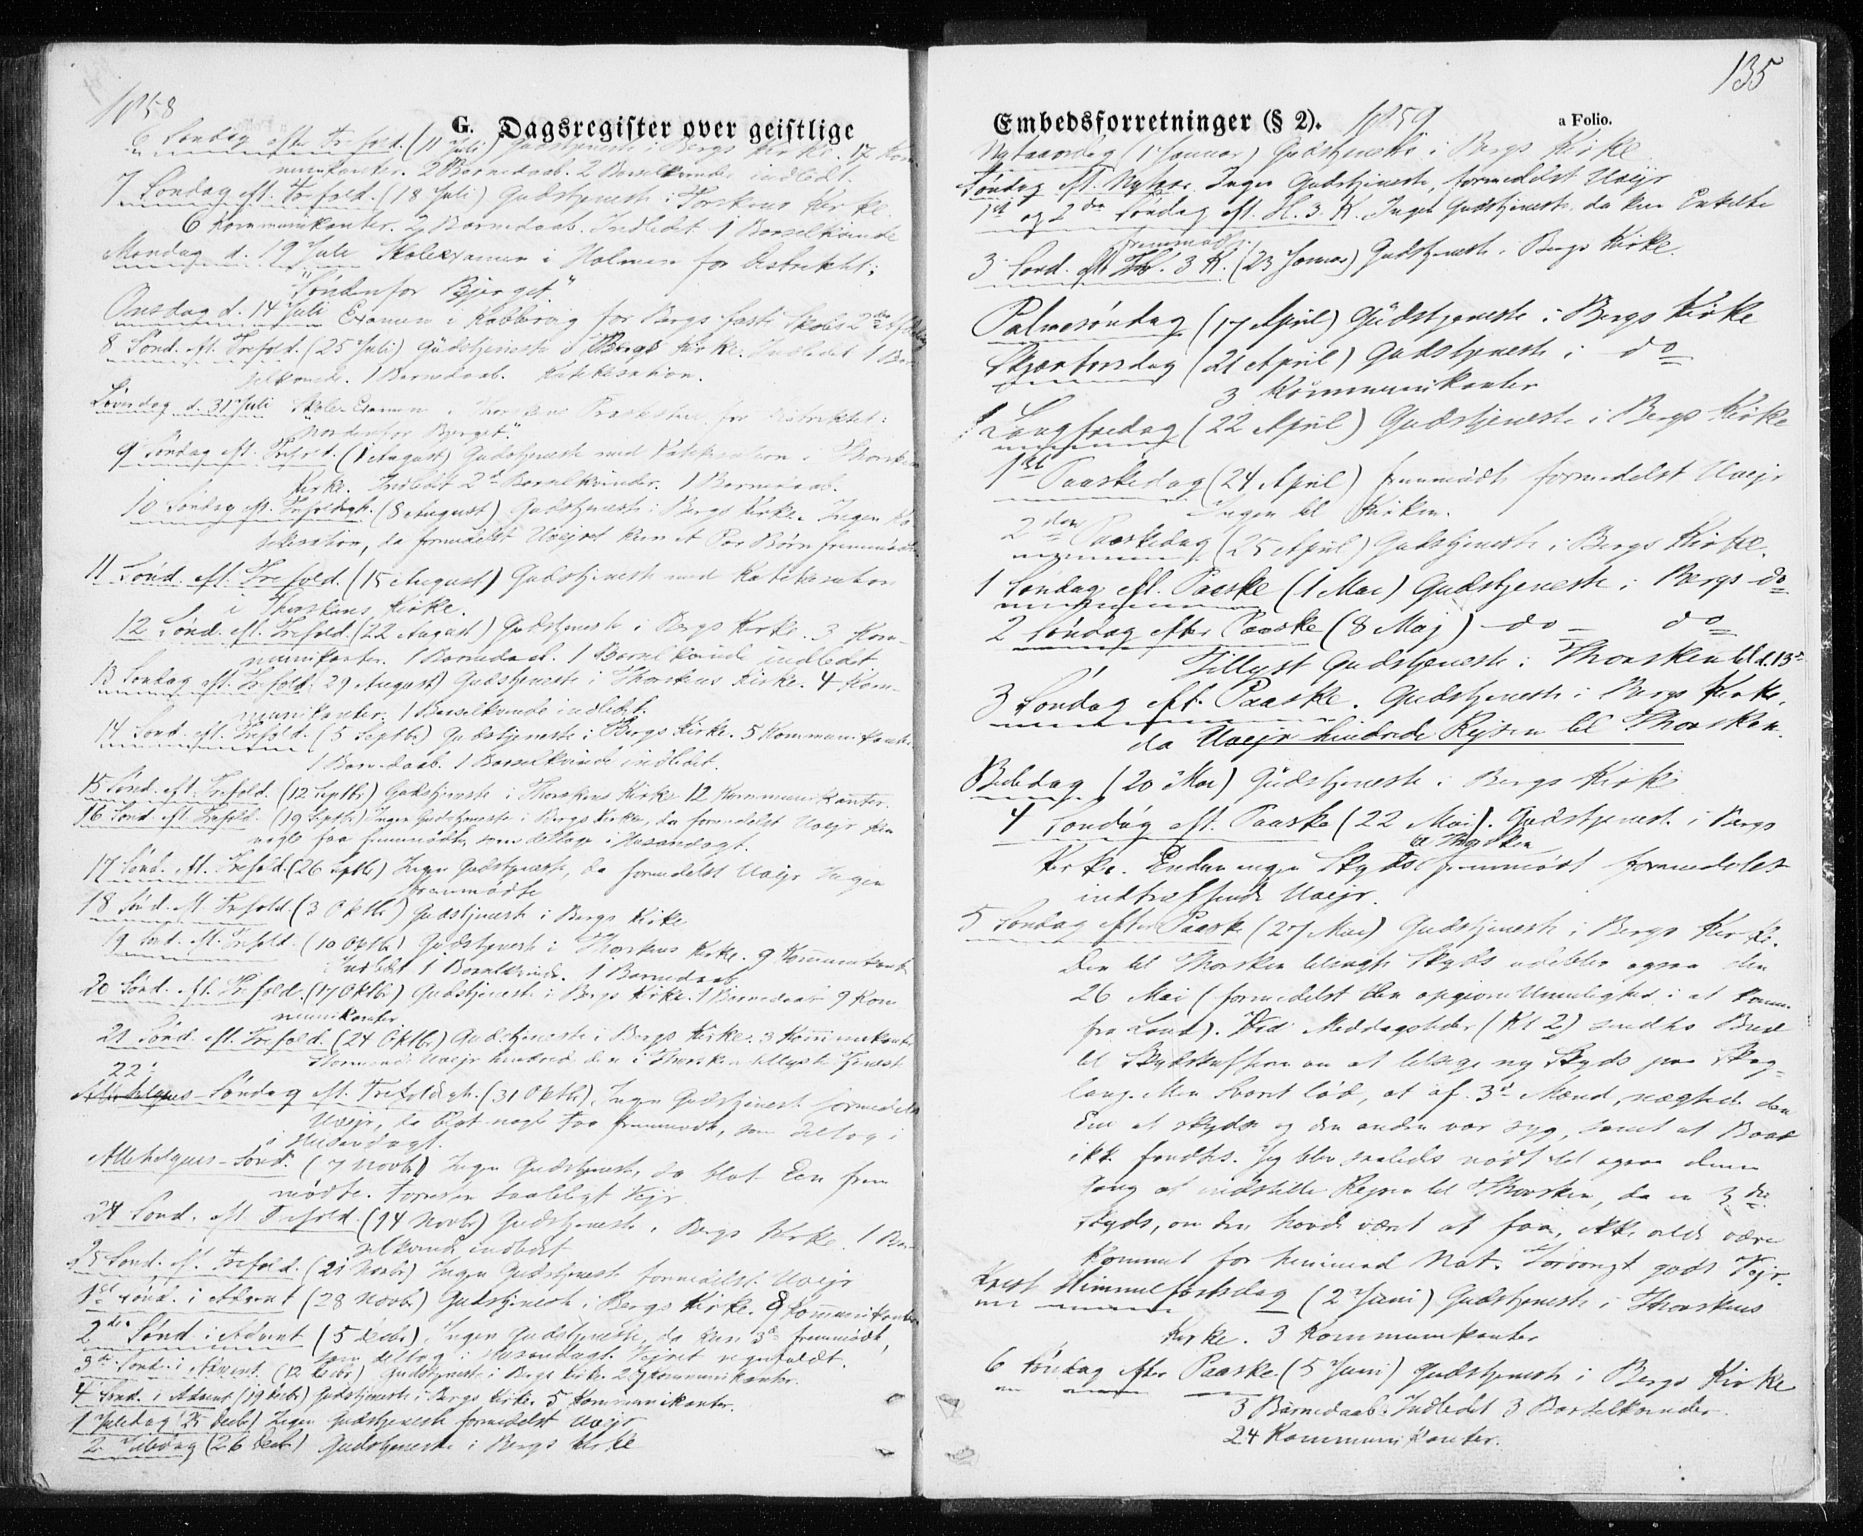 1858
G. Dagsregister over geistlige
6 Søndag efter Trefold. (11 Juli) Gudstjeneste i Bergs Kirke. 17 Kom-
munikanter. 2 Barnedaab. 2 Barselkvinder indledt.
7 Søndag eft. Trefold. (18 Juli) Gudstjeneste i Torskens Kirke
6 Kommunikanter. 2 Barnedaab. Indledet 1 Barselkvinde
Mandag d. 19 Juli Skoleexamen i Holmen for Distriktet:
"Søndenfor Bjerget."
Onsdag d. 14 Juli Examen i Kobbervig for Bergs faste Skoles 2den Afdeling
8 Sønd. eft. Trefold. (25 Juli) Gudstjeneste i Bergs Kirke. Indledet 1 Bar-
selkvinde. 1 Barnedaab. Katekisation.
Løverdag d. 31 Juli Skole-Examen i Thorskens Præstestue for Distriktet:
"Nordenfor Bjerget."
9 Søndag eft. Trefold. (1 August) Gudstjeneste med Katekisation i Thorskens
Kirke. Indledet 2de Barselkvinder. 1 Barnedaab.
10 Søndag eft. Trefoldigh. (8 August) Gudstjeneste i Bergs Kirke. Ingen Ka-
tekisation, da formedelst Uveiret kun et Par Børn fremmødte
11 Sønd. eft. Trefold. (15 August) Gudstjeneste med Katekisation
i Thorskens Kirke.
12 Sønd. eft. Trefold. (22 August) Gudstjeneste i Bergs Kirke. 3 Kom-
munikanter. 1 Barnedaab. 1 Barselkvinde indledet
13 Søndag eft. Trefold. 29 August) Gudstjeneste i Thorskens Kirke. 4 Kom-
munikanter. 1 Barselkvinde indledet.
14 Sønd. eft. Trefold. (5 Septbr) Gudstjeneste i Bergs Kirke. 5 Kommunikanter
1 Barnedaab. 1 Barselkvinde indledet.
15 Sønd. eft. Trefold. (12 Septbr) Gudstjeneste i Thorskens Kirke 12 Kommunikanter.
16 Sønd. eft. Trefold. (19 Septbr) Ingen Gudstjeneste i Bergs Kirke, da formedelst Uveir kun
nogle faa fremmødte, som deltoge i Husandagt.
17 Sønd. eft. Trefold. (26 Septbr) Ingen Gudstjeneste, da formedelst Uveir Ingen
fremmødte
18 Sønd. eft. Trefold. (3 Oktbr) Gudstjeneste i Bergs Kirke
19 Sønd. eft. Trefold. (10 Oktbr) Gudstjeneste i Thorskens Kirke. 9 Kommunikanter
Indledet 1 Barselkvinde. 1 Barnedaab
20 Sønd. eft. Trefold. (17 Oktbr) Gudstjeneste i Bergs Kirke. 1 Barnedaab 9 Kom-
munikanter
21 Sønd. eft. Trefold. (24 Oktbr) Gudstjeneste i Bergs Kirke. 3 Kommunikanter
Uveir hindrede den i Thorsken tillyste Tjeneste
22
Allehelgens Søndag eft. Trefoldigh. (31 Oktbr). Ingen Gudstjeneste formedelst
Uveir, da blot nogle Faa fremmødte, som deltog i
i Husandagt.
Allehelgens-Sønd. (7 Novbr) Ingen Gudstjeneste, da blot Een frem
mødte.
24 Sønd. eft. Trefold. (14 Novbr) Gudstjeneste i Bergs Kirke. 1 Bar-
selkvinde indledet
25 Sønd. eft. Trefold. (21 Novbr) Ingen Gudstjeneste formedelst Uveir
1ste Sønd. i Advent (28 Novbr) Gudstjeneste i Bergs Kirke. 8 Kommunikanter
2den Sønd i Advent (5 Decbr). Ingen Gudstjeneste, da kun 3de fremmødte,
som deltog i Husandagt. Veiret regnfuldt.
3die Sønd. i Advent. (12 Decbr) Gudstjeneste i Bergs Kirke. 2 Kommunikanter.
4 Sønd. i Advent (19 Decbr) Gudstjeneste i Bergs Kirke 5 Kommunikanter.
1 Juledag (25 Decbr) Ingen Gudstjeneste formedelst Uveir
2 Juledag (26 Decbr) Gudstjeneste i Bergs Kirke
135
Embedsforretninger (§ 2). 1859
a Folio.
Nytaarsdag (1 Januar) Gudstjeneste i Bergs Kirke
Søndag eft. Nytaar. Ingen Gudstjeneste, formedelst Uveir
1ste og 2den Søndag eft. H. 3 K. Ingen Gudstjeneste da kun Enkelte
fremmødte
3 Sønd. eft. H. 3 K. (23 Januar) Gudstjeneste i Bergs Kirke.
Palmesøndag (17 April) Gudstjeneste i Bergs Kirke
Skjærtorsdag (21 April) Gudstjeneste i do
3 Kommunikanter
Langfredag (22 April) Gudstjeneste i Bergs Kirke
1ste Paaskedag (24 April) fremmødte formedelst Uveir
Ingen til Kirken.
2den Paaskedag (25 April) Gudstjeneste i Bergs Kirke.
1 Søndag eft. Paaske (1 Mai) Gudstjeneste i Bergs do
2 Søndag efter Paaske (8 Maj) do – do
Tillyst Gudstjeneste i Thorsken til d. 15de
3 Søndag eft. Paaske. Gudstjeneste i Bergs Kirke,
da Uveir hindrede Rejsen til Thorsken.
Bededag (20 Mai) Gudstjeneste i Bergs Kirke
4 Søndag eft. Paaske (22 Mai). Gudstjeneste i Bergs
til Thorsken
Kirke. Endnu ingen Skyds fremmødt formedelst
indtræffende Uveir.
5 Søndag efter Paaske (27 Mai) Gudstjeneste i Bergs Kirke.
Den til Thorsken tilsagte Skyds udeblev ogsaa den
26 Mai (formedelst den opgivne Umulighed i at komme
fra Land). Ved Middagstider (Kl 2) sendtes Bud
til Skydsskafferen om at tilsige ny Skyds paa Skog-
lang. Men Svaret lød, at af 3de Mænd, nægtede den
Ene at skydse og den anden var syg, samt at Baad
ikke fandtes. Jeg blev saaledes nødt til ogsaa denne
Gang at indstille Rejsen til Thorsken, da en 3die
Skyds, om den havde været at faa, ikke vilde være
kommet for henimod Nat. Forøvrigt godt Vejr.
Krist. Himmelfartsdag (2 Juni) Gudstjeneste i Thorskens
Kirke. 3 Kommunikanter
6 Søndag efter Paaske (5 Juni) Gudstjeneste i Bergs Kirke
3 Barnedaab. Indledet 3 Barselkvinder.
24 Kommunikanter.